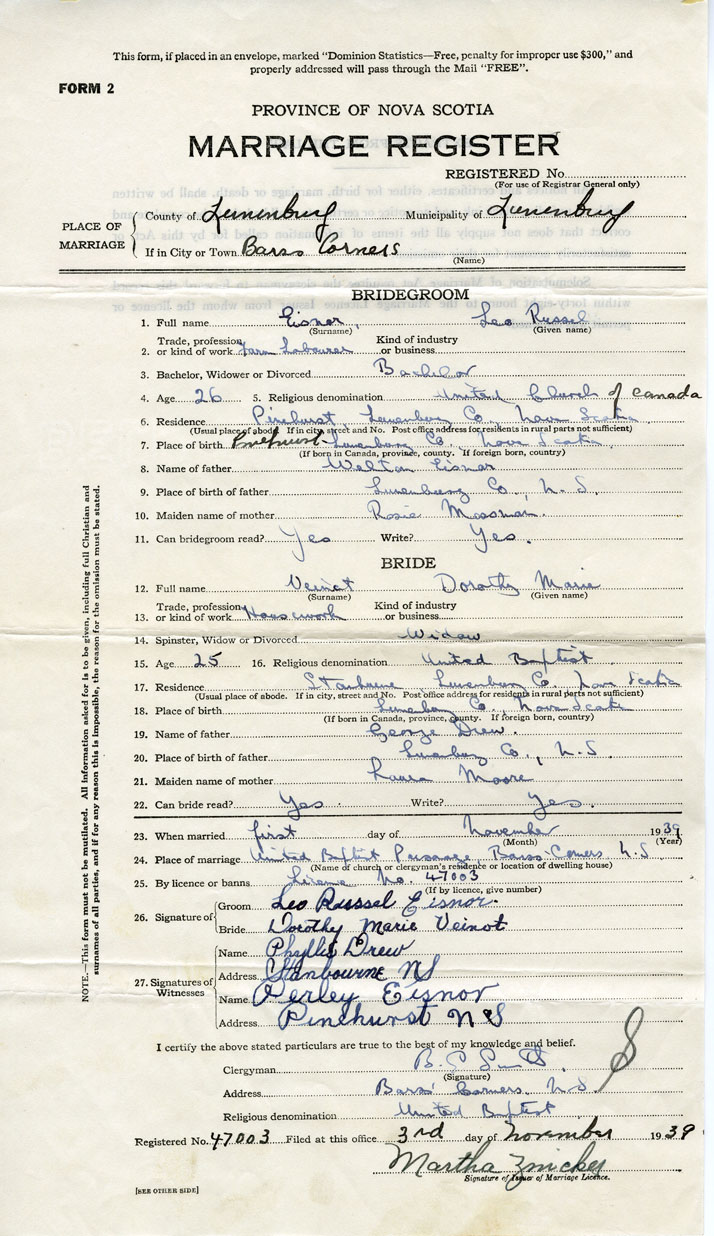 This form, if placed in an envelope, marked "Dominion Statistics—Free, penalty for improper use $300," and
properly addressed will pass through the Mail "FREE".
FORM 2
PROVINCE OF NOVA SCOTIA
MARRIAGE REGISTER
REGISTERED No.
(For use of Registrar General only)
PLACE OF MARRIAGE
County of Lunenburg Municipality of Lunenburg
If in City or Town Barss Corners
(Name)
BRIDEGROOM
1. Full name Eisnor, Leo Russel
(Surname) (Given name)
2. Trade, profession or kind of work Farm Labourer Kind of industry or business
3. Bachelor, Widower or Divorced Bachelor
4. Age 26 5. Religious denomination United Church of Canada
6. Residence Pinehurst, Lunenburg Co., Nova Scotia
(Usual place of abode. If in city, street and No. Post office address for residents in rural parts not sufficient)
7. Place of birth Pinehurst Lunenburg Co., Nova Scotia
(If born in Canada, province, county. If foreign born, country)
8. Name of father Welton Eisnor
9. Place of birth of father Lunenburg Co., N.S.
10. Maiden name of mother Rosie Mossman
11. Can bridegroom read? Yes Write? Yes.
BRIDE
12. Full name Veinot Dorothy Marie
(Surname) (Given name)
13. Trade, profession or kind of work Housework Kind of industry or business
14. Spinster, Widow or Divorced Widow
15. Age 25 16. Religious denomination United Baptist
17. Residence Stanburne, Lunenburg Co., Nova Scotia
(Usual place of abode. If in city, street and No. Post office address for residents in rural parts not sufficient)
18. Place of birth Lunenburg Co., Nova Scotia
(If born in Canada, province, county. If foreign born, country)
19. Name of father George Drew
20. Place of birth of father Lunenburg Co., N.S.
21. Maiden name of mother Laura Moore
22. Can bride read? Yes Write? Yes.
23. When married first day of November 1939
(Month) (Year)
24. Place of marriage United Baptist Parsonage, Barss Corners N.S
(Name of church or clergyman's residence or location of dwelling house)
25. By licence or banns License No. 47003
(If by licence, give number)
26. Signature of
Groom Leo Russel Eisnor.
Bride Dorothy Marie Veinot
27. Signatures of Witnesses
Name Phyllis Drew
Address Stanbourne NS
Name Perley Eisnor
Address Pinehurst N S
I certify the above stated particulars are true to the best of my knowledge and belief.
Clergyman B.
(Signature)
Address Barss Corners, N.S
Religious denomination United Baptist
Registered No. 47003 Filed at this office 3rd day of November 1939
Martha Zinck
Signature of Issuer of Marriage Licence.
[SEE OTHER SIDE]
NOTE.—This form must not be mutilated. All information asked for is to be given, including full Christian and
surnames of all parties, and if for any reason this is impossible, the reason for the omission must be stated.